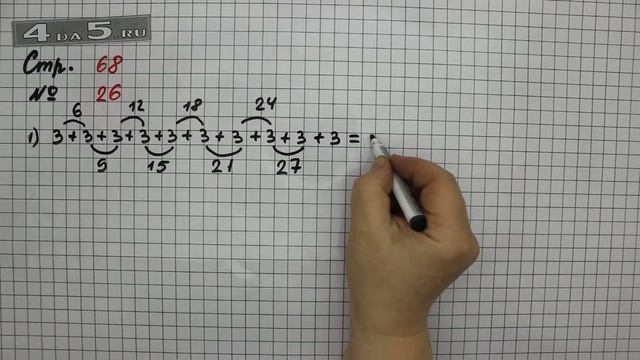 4 ДА 5.RU
Стр. 68
№ 26
6 12 18 24
1) 3 + 3 + 3 + 3 + 3 + 3 + 3 + 3 + 3 + 3 =
9 15 21 27